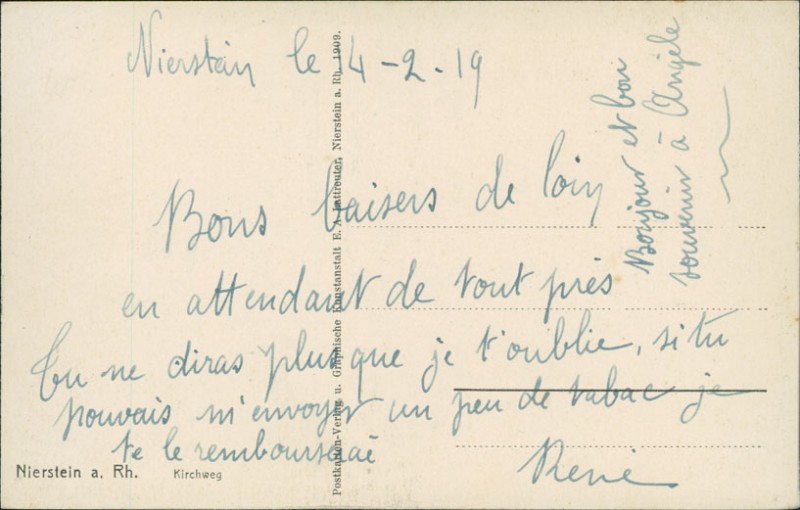 Nierstein le 14-2-19
Bons baisers de loin
en attendant de tout près
Tu ne diras plus que je t'oublie, si tu
pouvais m'envoyer un peu de tabac je
te le rembourserai
René
Bonjour et bon
souvenir à Angèle
Nierstein a. Rh. Kirchweg
Postkarten-Verlag u. Graphische Kunstanstalt E. A. Lattreuter, Nierstein a. Rh. 1909.